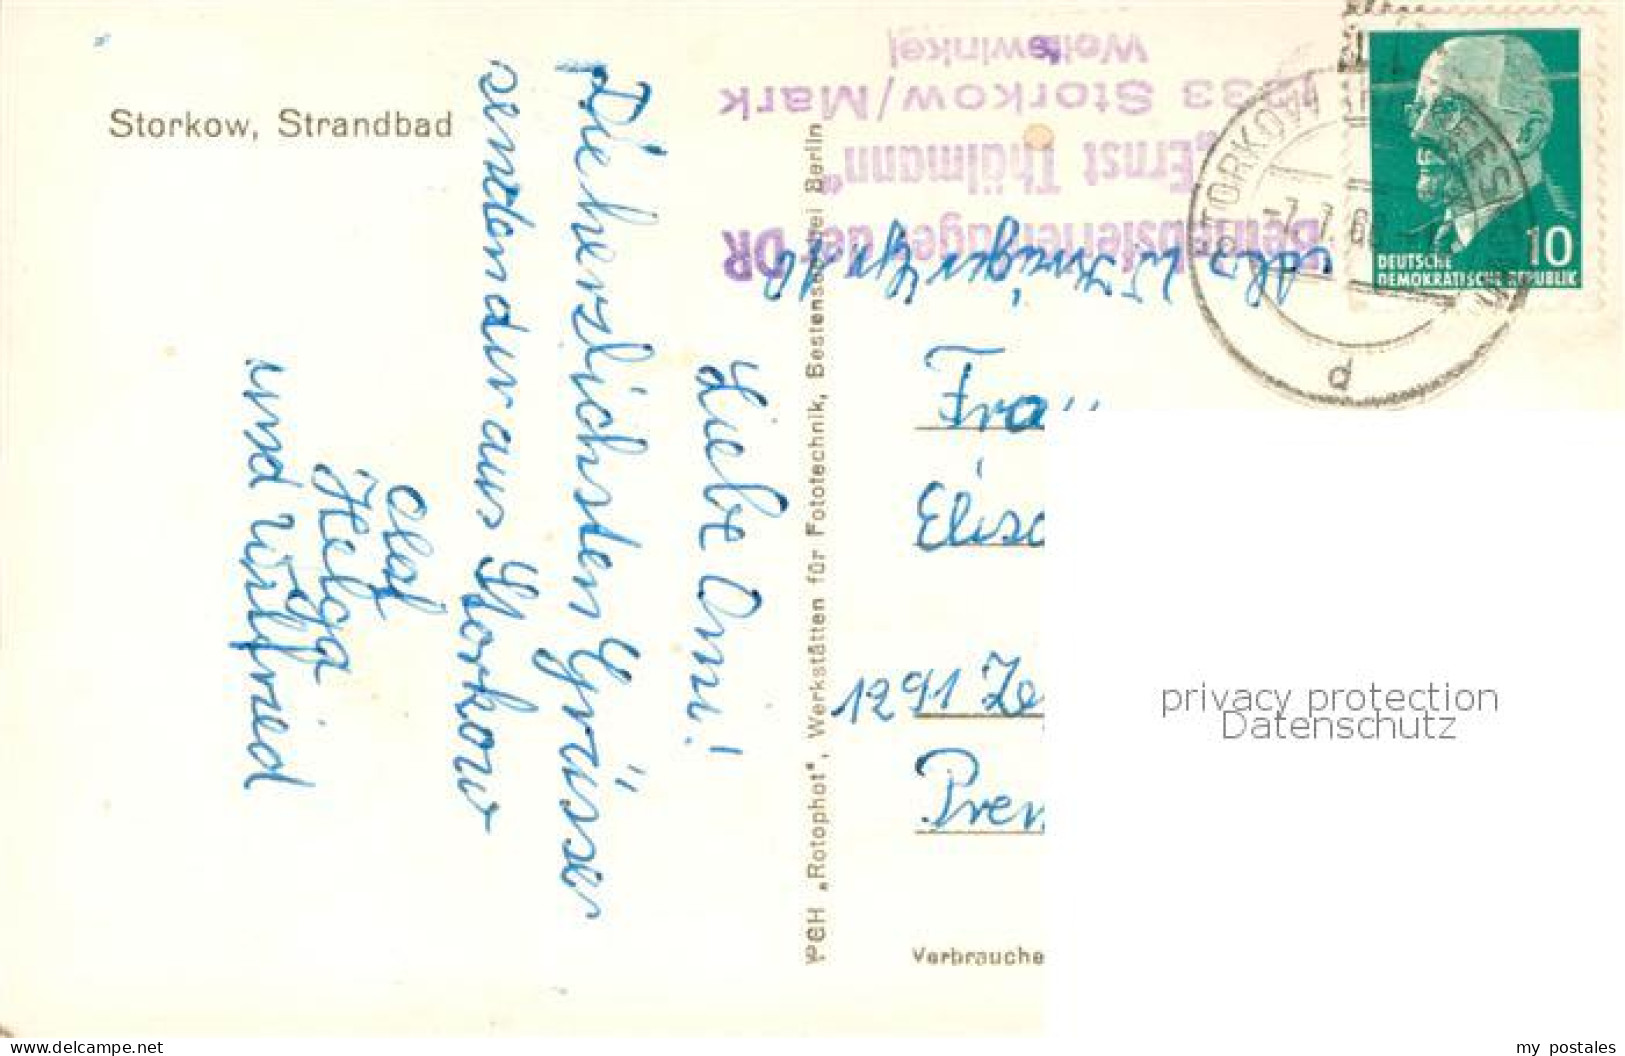 Storkow, Strandbad
Liebe Omi!
Die herzlichsten Grüsse
senden dir aus Storkow
Olaf
Helga
und Wilfried
PGH „Rotophot“, Werkstätten für Fototechnik, Bestensee bei Berlin
Betriebsferienlager der DR
„Ernst Thälmann“
1233 Storkow/Mark
Wolfswinkel
STORKOW
7.7.6
d
10
DEUTSCHE
DEMOKRATISCHE REPUBLIK
Frau
Elisa
1291 Ze
Pren
Verbrauche
privacy protection
Datenschutz
www.delcampe.net
my_postales